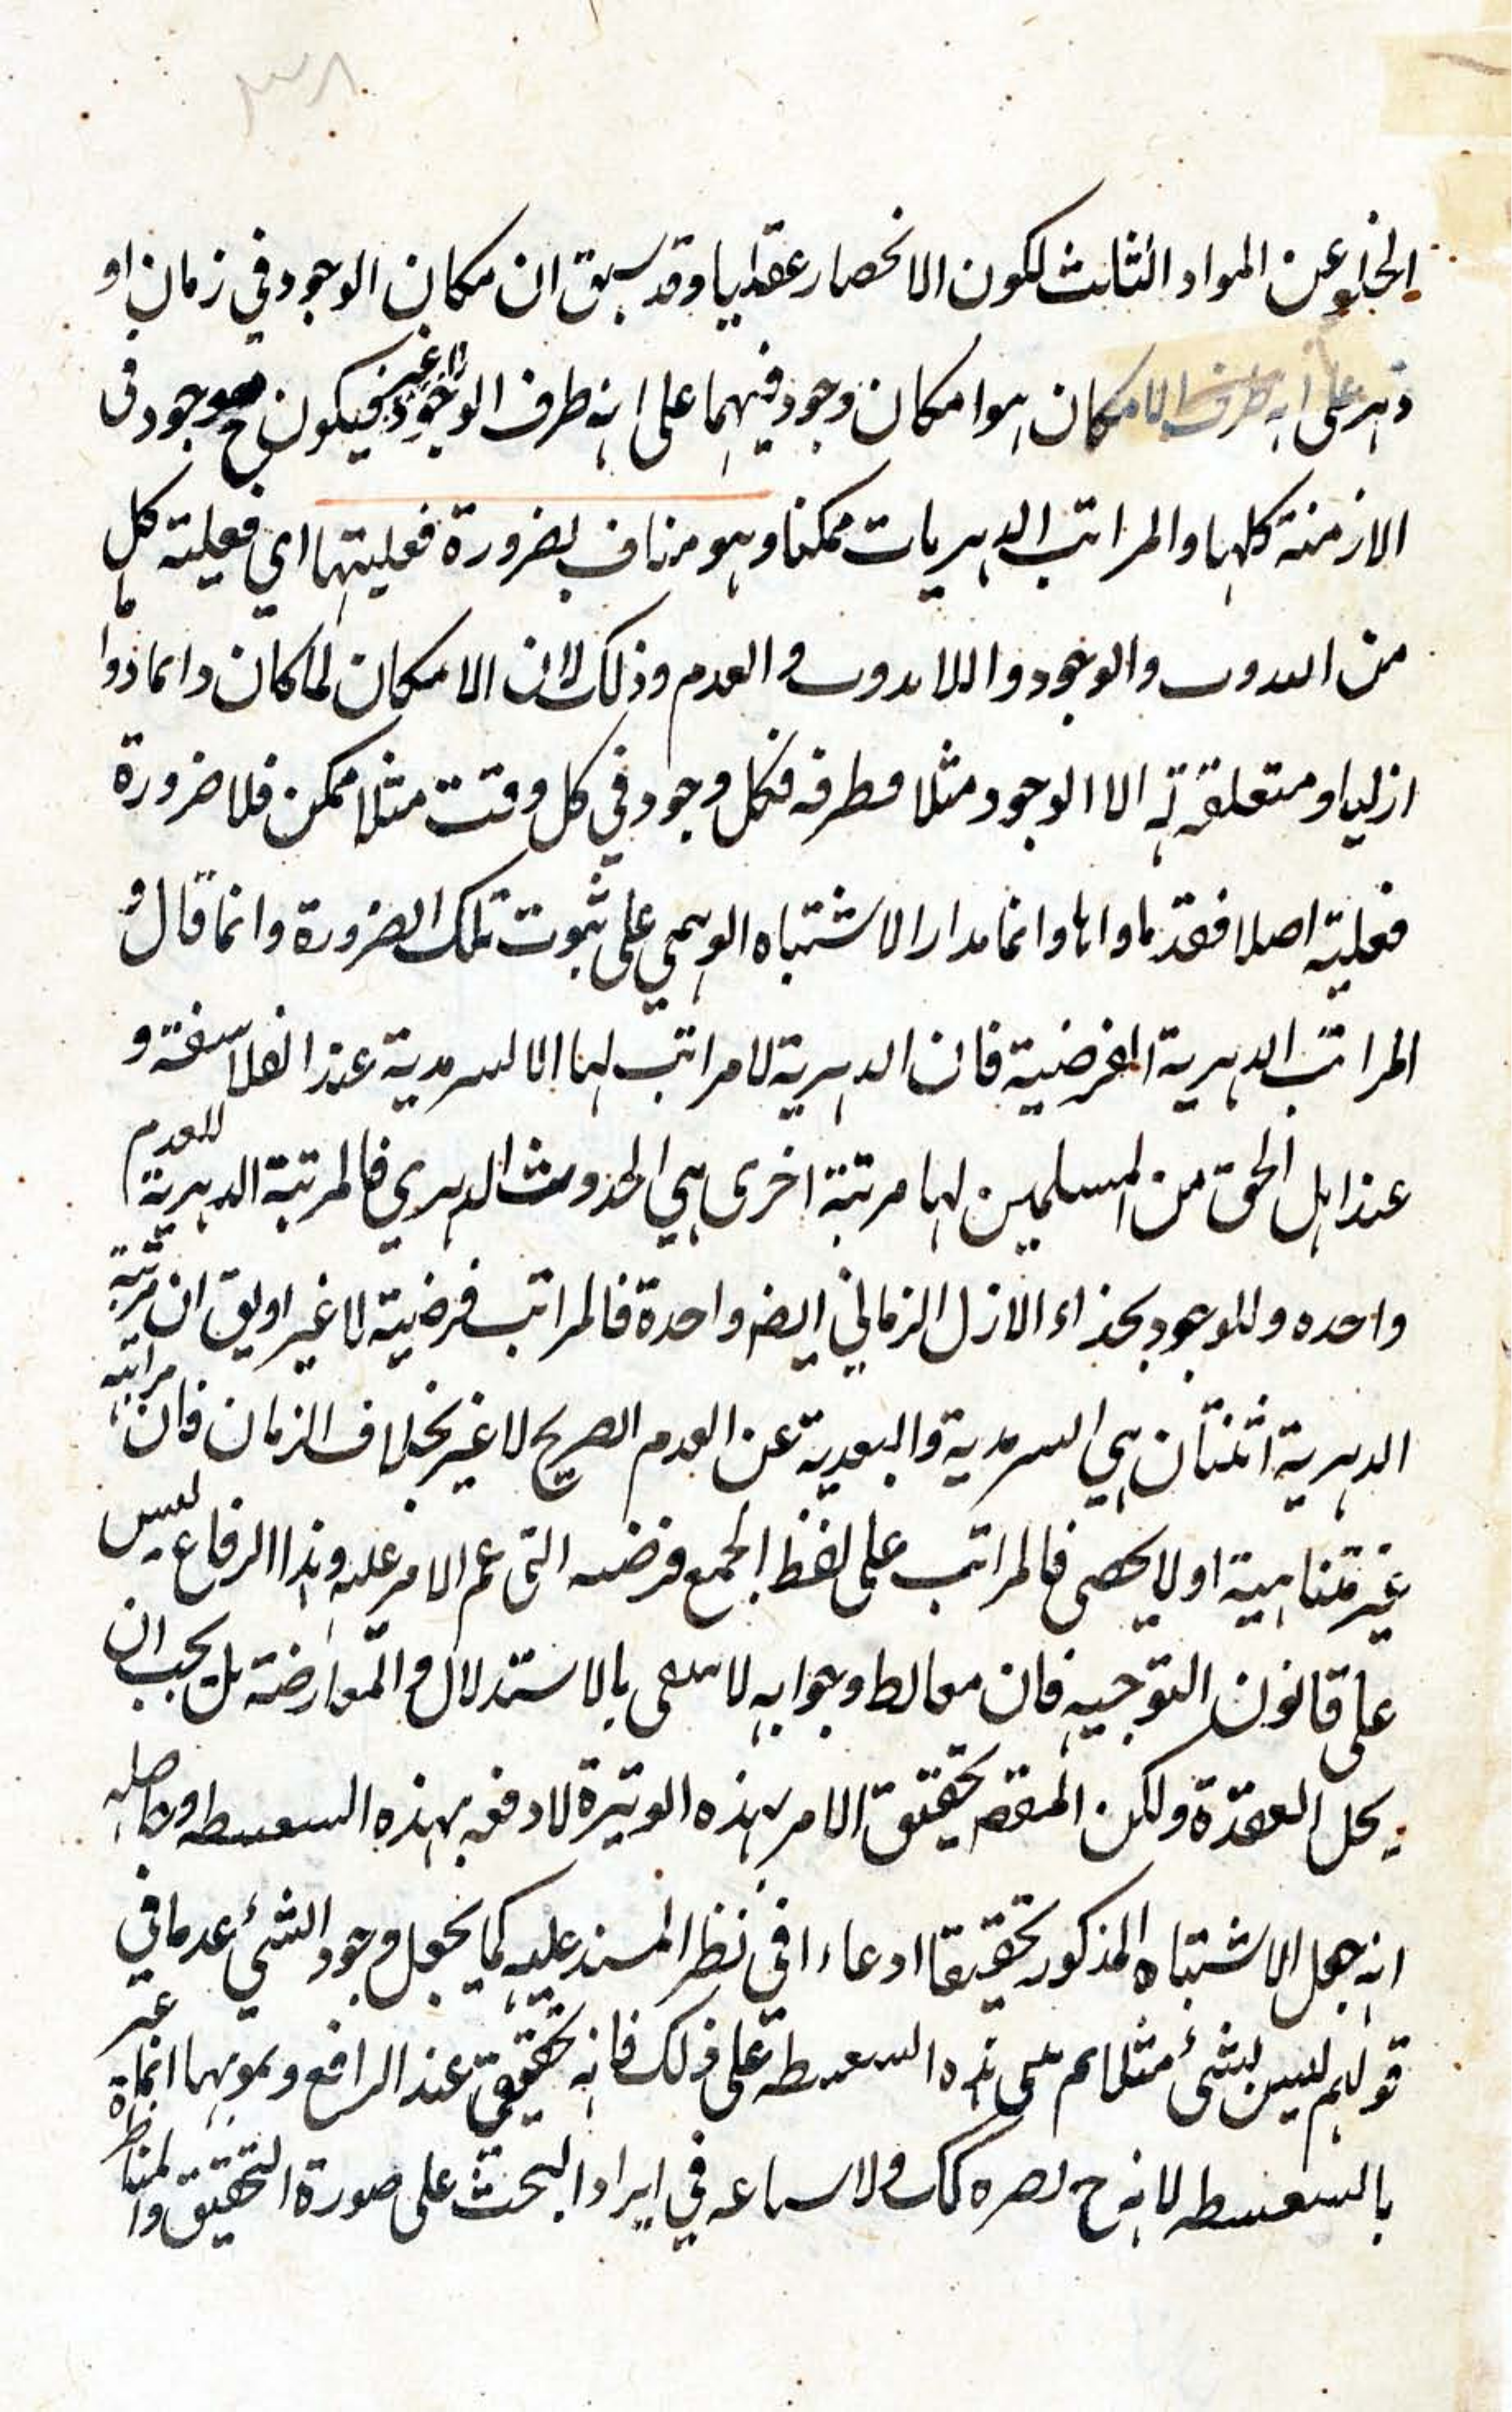 الخلو عن المواد الثلث لكون الانحصار عقليا وقد سبق ان مكان الوجود في زمان او
دهر على انه ظرف الامكان هو امكان وجود فيهما على انه ظرف الوجود لا غير فيكون ح موجود في
الازمنة كلها والمراتب الدهريات ممكنا وهو مناف لضرورة فعليتها اي فعلية كل
من الحدوث والوجود واللاحدوث والعدم وذلك لان الامكان لما كان دائما دواما
ازليا ومتعلقة الا الوجود مثلا وطرفه فكل وجود في كل وقت مثلا ممكن فلا ضرورة
فعلية اصلا وانما مدار الاشتباه الوهمي على ثبوت تلك الضرورة وانما قال و
المراتب الدهرية الفرضية فان الدهرية لا مراتب لها الا السرمدية عند الفلاسفة و
عند اهل الحق من المسلمين لها مرتبة اخرى هي الحدوث الدهري فالمرتبة الدهرية للعدم
واحده وللوجود بحذاء الازل الزماني ايضه واحدة فالمراتب فرضية لا غير او يق ان مرتبة
الدهرية اثنتان هي السرمدية والبعدية عن العدم الصريح لا غير بخلاف الزمان فان مراتبه
غير متناهية او لا يحصى فالمراتب على لفظ الجمع فرضيه التي عم الامر عليه وهذا الرفاع ليس
على قانون التوجيه فان مغالط وجوابه لا بالاستدلال والمعارضة بل يجب ان
يحل العقدة ولكن المقصه تحقيق الامر بهذه الوتيرة لا دفعه بهذه السفسطه وحاصله
انه جعل الاشتباه المذكور تحقيقا ادعاءا في نظر المستند عليه كما يجعل وجود الشيء عدما في
قولهم ليس بشئ مثلا ثم بنى هذه السفسطة على ذلك فانه تحقيقي عند الرافع وبموبهما انما غير
بالسفسطه لانه ح كك ولا في ايراد البحث على صورة التحقيق والمناظرة